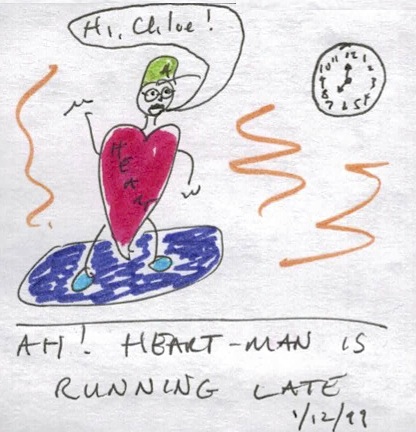 Hi, Chloe!
H
E
A
R
AH! HEART-MAN IS
RUNNING LATE
1/12/99